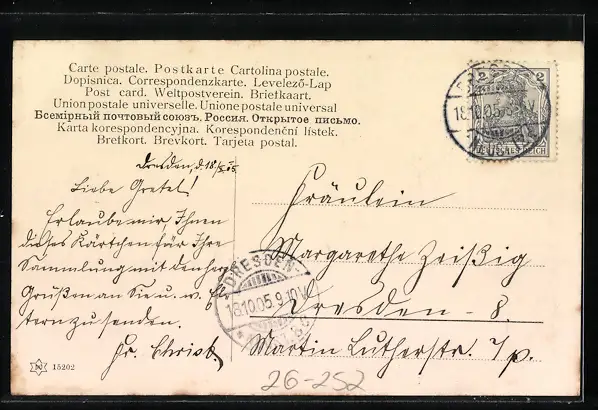 Carte postale. Postkarte Cartolina postale.
Dopisnica. Correspondenzkarte. Levelező-Lap
Post card. Weltpostverein. Briefkaart.
Union postale universelle. Unione postale universal
Всемірный почтовый союзъ. Россия. Открытое письмо.
Karta korespondencyjna. Korespondenční lístek.
Bretkort. Brevkort. Tarjeta postal.
2 2
DEUTSCHES REICH
DRESDEN
18.10.05.
Dresden, d. 18.
Liebe Gretel!
Erlaube mir, Ihnen
dieses Kärtchen für Ihre
Sammlung mit den herzl.
Grüßen an Sie u. w. El
tern zu senden.
Fr. Christ.
Fräulein
Margarethe Zeißig
Dresden - 8.
Martin Lutherstr. 7/p.
DRESDEN
18.10.05.9-10V.
15202
26-252